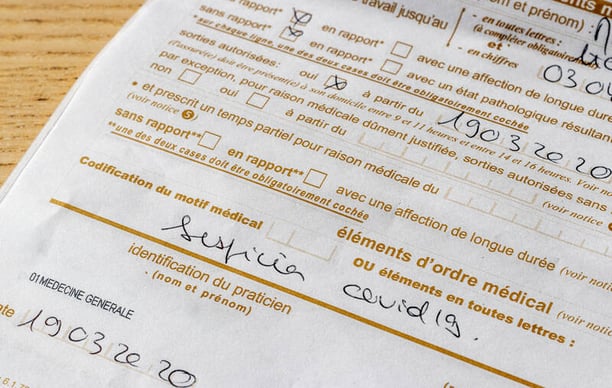 nts m
nom et prénom) :
travail jusqu'au
- en toutes lettres :
(à compléter obligatoirement
et
- en chiffres
03 04
en rapport*
sans rapport*
en rapport*
avec une affection de longue durée
*sur chaque ligne, une des deux cases doit être obligatoirement cochée
en rapport*
avec un état pathologique résultant
sorties autorisées :
oui
à partir du
19032020
(l'assuré(e) doit être présent(e) à son domicile entre 9 et 11 heures et entre 14 et 16 heures. Voir
par exception, pour raison médicale dûment justifiée, sorties autorisées sans
non
oui
à partir du
(voir notice
• et prescrit un temps partiel pour raison médicale du
(voir notice 5)
sans rapport**
en rapport**
avec une affection de longue durée
(voir notice
**une des deux cases doit être obligatoirement cochée
Codification du motif médical
éléments d'ordre médical
(voir notice
ou éléments en toutes lettres :
covid19.
identification du praticien
(nom et prénom)
01 MEDECINE GENERALE
ate
19032020